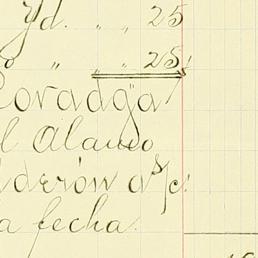 Yd. " " 25
o " " 25
Coradga
l Alamo
lderón a s/c.
a fecha.